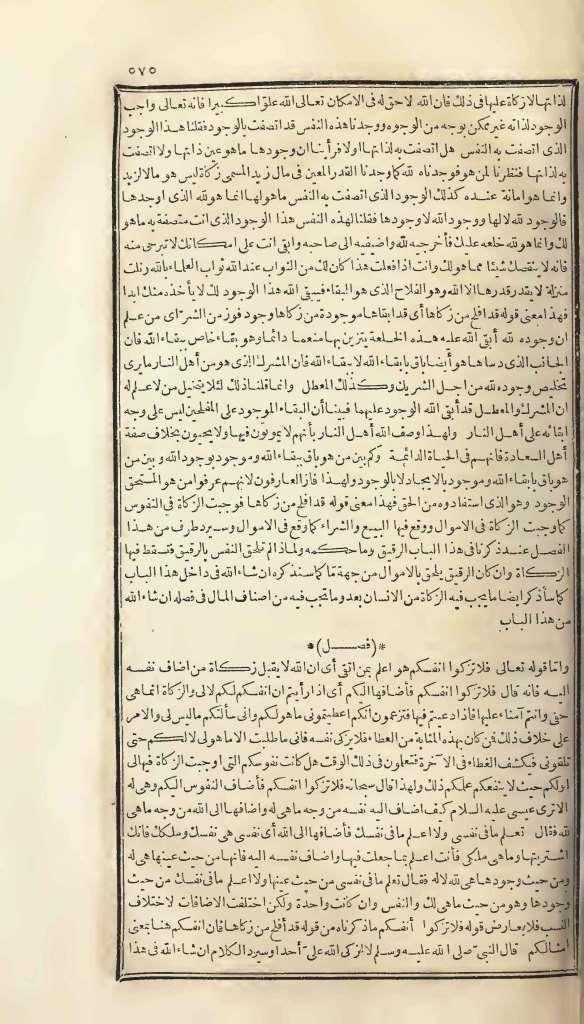 ٥٧٥
لذاتها لا زكاة عليها فى ذلك فان الله لا حق له فى الامكان تعالى الله علوّا كبيرا فانه تعالى واجب
الوجود لذاته غير ممكن بوجه من الوجوه ووجدنا هذه النفس قد اتصفت بالوجود فقلنا هذا الوجود
الذى اتصفت به النفس هل اتصفت به لذاتها أولا فرأينا ان وجودها ما هو عين ذاتها ولا اتصفت
به لذاتها فنظرنا لمن هو فوجدناه لله كما وجدنا القدر المعين فى مال زيد المسمى زكاة ليس هو مال لزيد
وانما هو امانة عنده كذلك الوجود الذى اتصفت به النفس ما هو لها انما هو لله الذى اوجدها
فالوجود لله لا لها ووجود الله لا وجودها فقلنا لهذه النفس هذا الوجود الذى انت متصفة به ما هو
لك وانما هو لله خلعه عليك فأخرجيه لله واضيفيه الى صاحبه وابقى انت على امكانك لا تبرحى منه
فانه لا ينقصك شيئا مما هو لك وانت اذا فعلت هذا كان لك من الثواب عند الله ثواب العلماء بالله ونلت
منزلة لا يقدر قدرها الا الله وهو الفلاح الذى هو البقاء فيبقى الله هذا الوجود لك لا يأخذه منك ابدا
فهذا معنى قوله قد افلح من زكاها أى قد ابقاها موجودة من زكاها وجود فوز من الشر أى من علم
ان وجوده لله أبقى الله عليه هذه الخلعة يتزين بها منعما دائما وهو بقاء خاص ببقاء الله فان
الخائب الذى دساها هو أيضا باق بابقاء الله لا ببقاء الله فان المشرك الذى هو من أهل النار ما يرى
تخليص وجوده لله من اجل الشريك وكذلك المعطل وانما قلنا ذلك لئلا يتخيل من لا علم له
ان المشرك والمعطل قد أبقى الله الوجود عليهما فبينا أن البقاء الموجود على المفلحين ليس على وجه
ابقائه على أهل النار ولهذا وصف الله أهل النار بأنهم لا يموتون فيها ولا يحيون بخلاف صفة
أهل السعادة فانهم فى الحياة الدائمة وكم بين من هو باق ببقاء الله وموجود بوجود الله وبين من
هو باق بابقاء الله وموجود بالايجاد لا بالوجود ولهذا فاز العارفون لانهم عرفوا من هو المستحق
الوجود وهو الذى استفادوه من الحق فهذا معنى قوله قد افلح من زكاها فوجبت الزكاة فى النفوس
كما وجبت الزكاة فى الاموال ووقع فيها البيع والشراء كما وقع فى الاموال وسيرد طرف من هذا
الفصل عند ذكرنا فى هذا الباب الرقيق وما حكمه ولماذا لم تلحق النفس بالرقيق فتسقط فيها
الزكاة وان كان الرقيق يلحق بالاموال من جهة ما كما سنذكره ان شاء الله فى داخل هذا الباب
كما سأذكر ايضا ما يجب فيه الزكاة من الانسان بعد وما تجب فيه من اصناف المال فى فصله ان شاء الله
من هذا الباب
*(فصل)*
وامّا قوله تعالى فلا تزكوا انفسكم هو اعلم بمن اتقى أى ان الله لا يقبل زكاة من اضاف نفسه
اليه فانه قال فلا تزكوا انفسكم فأضافها اليكم أى اذا رأيتم ان انفسكم لكم لا لى والزكاة انما هى
حقى وانتم أمناء عليها فاذا ادعيتم فيها فتزعمون أنكم اعطيتمونى ما هو لكم وانى سألتكم ما ليس لى والامر
على خلاف ذلك فمن كان بهذه المثابة من العطاء فلا يزكى نفسه فانى ما طلبت الا ما هو لى لا لكم حتى
تلقونى فيكشف الغطاء فى الآخرة فتعلمون فى ذلك الوقت هل كانت نفوسكم التى اوجبت الزكاة فيها لى
او لكم حيث لا ينفعكم علمكم ذلك ولهذا قال سبحانه فلا تزكوا انفسكم فأضاف النفوس اليكم وهى له
الا ترى عيسى عليه السلام كيف اضاف اليه نفسه من وجه ما هى له واضافها الى الله من وجه ما هى
لله فقال تعلم ما فى نفسى ولا اعلم ما فى نفسك فأضافها الى الله أى نفسى هى نفسك وملكك فانك
اشتريتها وما هى ملكى فأنت اعلم بما جعلت فيها واضاف نفسه اليه فانها من حيث عينها هى له
ومن حيث وجودها هى لله لا له فقال تعلم ما فى نفسى من حيث عينها ولا اعلم ما فى نفسك من حيث
وجودها وهو من حيث ما هى لك والنفس وان كانت واحدة ولكن اختلفت الاضافات لاختلاف
النسب فلا يعارض قوله فلا تزكوا أنفسكم ما ذكرناه من قوله قد أفلح من زكاها فان انفسكم هنا بمعنى
امثالكم قال النبىّ صلى الله عليه وسلم لا ازكى على الله أحدا وسيرد الكلام ان شاء الله فى هذا